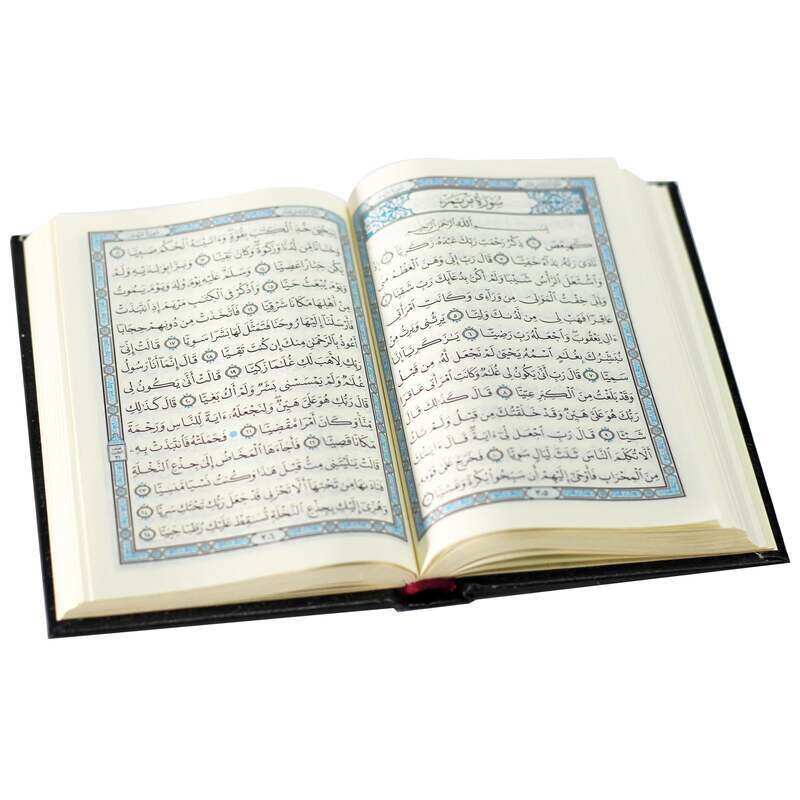 سُورَةُ مَرْيَمَ
بِسْمِ اللَّهِ الرَّحْمَٰنِ الرَّحِيمِ
كٓهيعٓصٓ ١ ذِكْرُ رَحْمَتِ رَبِّكَ عَبْدَهُۥ زَكَرِيَّآ ٢ إِذْ
نَادَىٰ رَبَّهُۥ نِدَآءً خَفِيًّا ٣ قَالَ رَبِّ إِنِّي وَهَنَ ٱلْعَظْمُ مِنِّي
وَٱشْتَعَلَ ٱلرَّأْسُ شَيْبًا وَلَمْ أَكُنۢ بِدُعَآئِكَ رَبِّ شَقِيًّا ٤
وَإِنِّي خِفْتُ ٱلْمَوَٰلِيَ مِن وَرَآءِي وَكَانَتِ ٱمْرَأَتِي
عَاقِرًا فَهَبْ لِي مِن لَّدُنكَ وَلِيًّا ٥ يَرِثُنِي وَيَرِثُ مِنْ
ءَالِ يَعْقُوبَ وَٱجْعَلْهُ رَبِّ رَضِيًّا ٦ يَٰزَكَرِيَّآ إِنَّا
نُبَشِّرُكَ بِغُلَٰمٍ ٱسْمُهُۥ يَحْيَىٰ لَمْ نَجْعَل لَّهُۥ مِن قَبْلُ
سَمِيًّا ٧ قَالَ رَبِّ أَنَّىٰ يَكُونُ لِي غُلَٰمٌ وَكَانَتِ ٱمْرَأَتِي عَاقِرًا
وَقَدْ بَلَغْتُ مِنَ ٱلْكِبَرِ عِتِيًّا ٨ قَالَ كَذَٰلِكَ قَالَ
رَبُّكَ هُوَ عَلَيَّ هَيِّنٌ وَقَدْ خَلَقْتُكَ مِن قَبْلُ وَلَمْ تَكُ
شَيْئًا ٩ قَالَ رَبِّ ٱجْعَل لِّي ءَايَةً قَالَ ءَايَتُكَ
أَلَّا تُكَلِّمَ ٱلنَّاسَ ثَلَٰثَ لَيَالٍ سَوِيًّا ١٠ فَخَرَجَ عَلَىٰ قَوْمِهِۦ
مِنَ ٱلْمِحْرَابِ فَأَوْحَىٰٓ إِلَيْهِمْ أَن سَبِّحُوا۟ بُكْرَةً وَعَشِيًّا ١١
٣٠٥
يَٰيَحْيَىٰ خُذِ ٱلْكِتَٰبَ بِقُوَّةٍ وَءَاتَيْنَٰهُ ٱلْحُكْمَ صَبِيًّا ١٢
وَحَنَانًا مِّن لَّدُنَّا وَزَكَوٰةً وَكَانَ تَقِيًّا ١٣ وَبَرًّۢا بِوَٰلِدَيْهِ وَلَمْ
يَكُن جَبَّارًا عَصِيًّا ١٤ وَسَلَٰمٌ عَلَيْهِ يَوْمَ وُلِدَ وَيَوْمَ يَمُوتُ
وَيَوْمَ يُبْعَثُ حَيًّا ١٥ وَٱذْكُرْ فِي ٱلْكِتَٰبِ مَرْيَمَ إِذِ ٱنتَبَذَتْ
مِنْ أَهْلِهَا مَكَانًا شَرْقِيًّا ١٦ فَٱتَّخَذَتْ مِن دُونِهِمْ حِجَابًا
فَأَرْسَلْنَآ إِلَيْهَا رُوحَنَا فَتَمَثَّلَ لَهَا بَشَرًا سَوِيًّا ١٧ قَالَتْ إِنِّيٓ
أَعُوذُ بِٱلرَّحْمَٰنِ مِنكَ إِن كُنتَ تَقِيًّا ١٨ قَالَ إِنَّمَآ أَنَا۠ رَسُولُ
رَبِّكِ لِأَهَبَ لَكِ غُلَٰمًا زَكِيًّا ١٩ قَالَتْ أَنَّىٰ يَكُونُ لِي
غُلَٰمٌ وَلَمْ يَمْسَسْنِي بَشَرٌ وَلَمْ أَكُ بَغِيًّا ٢٠ قَالَ كَذَٰلِكِ
قَالَ رَبُّكِ هُوَ عَلَيَّ هَيِّنٌ وَلِنَجْعَلَهُۥٓ ءَايَةً لِّلنَّاسِ وَرَحْمَةً
مِّنَّا وَكَانَ أَمْرًا مَّقْضِيًّا ٢١ فَحَمَلَتْهُ فَٱنتَبَذَتْ بِهِۦ
مَكَانًا قَصِيًّا ٢٢ فَأَجَآءَهَا ٱلْمَخَاضُ إِلَىٰ جِذْعِ ٱلنَّخْلَةِ
قَالَتْ يَٰلَيْتَنِي مِتُّ قَبْلَ هَٰذَا وَكُنتُ نَسْيًا مَّنسِيًّا ٢٣
فَنَادَىٰهَا مِن تَحْتِهَآ أَلَّا تَحْزَنِي قَدْ جَعَلَ رَبُّكِ تَحْتَكِ سَرِيًّا ٢٤
وَهُزِّيٓ إِلَيْكِ بِجِذْعِ ٱلنَّخْلَةِ تُسَٰقِطْ عَلَيْكِ رُطَبًا جَنِيًّا ٢٥
٣٠٦